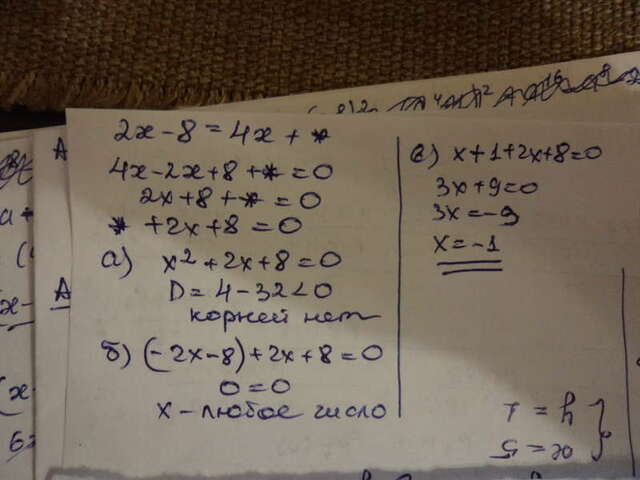 2x-8=4x+*
4x-2x+8+*=0
2x+8+*=0
*+2x+8=0
а) x²+2x+8=0
D=4-32<0
корней нет
б) (-2x-8)+2x+8=0
0=0
x-любое число
в) x+1+2x+8=0
3x+9=0
3x=-9
x=-1
x=5
y=1
A
A